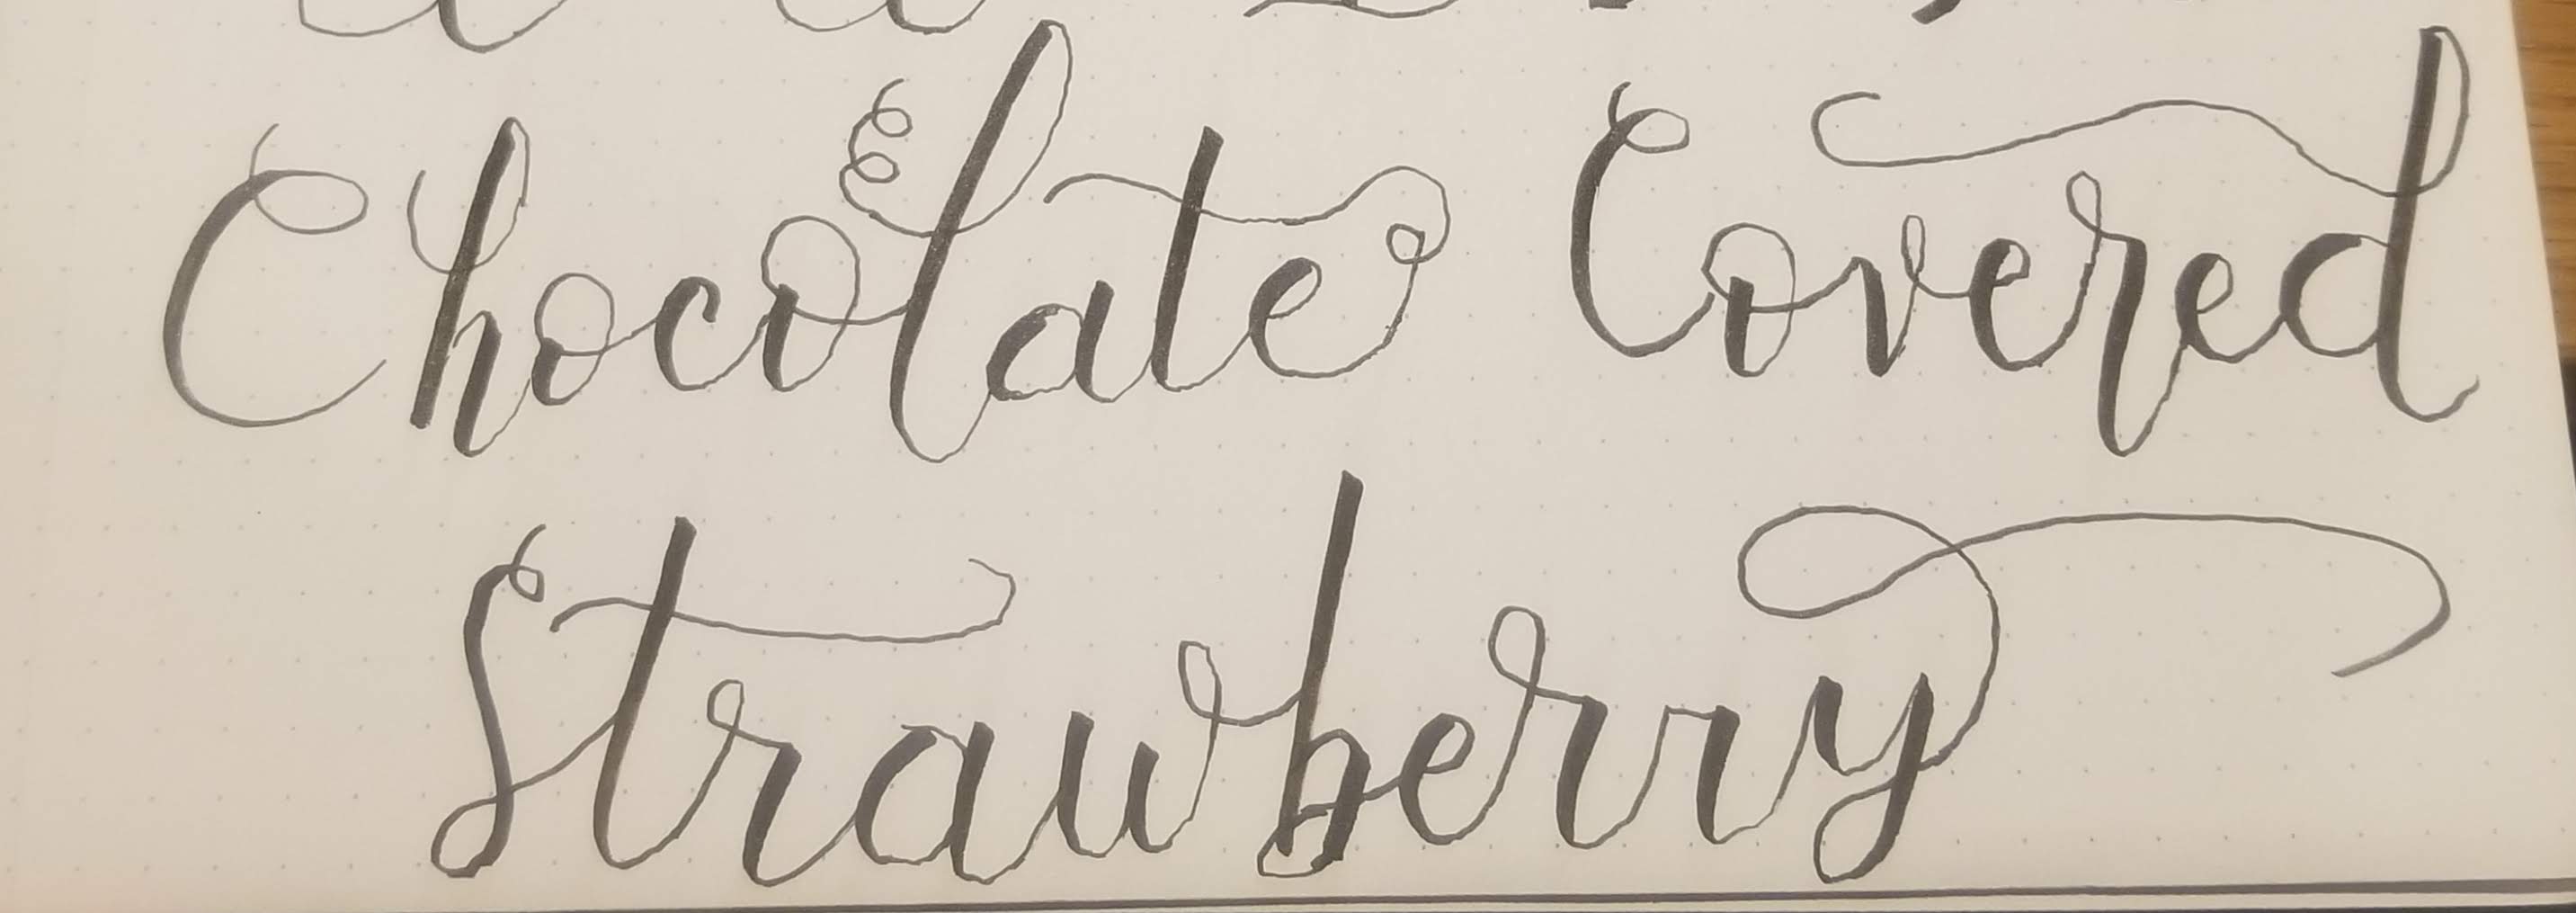 Chocolate Covered
Strawberry